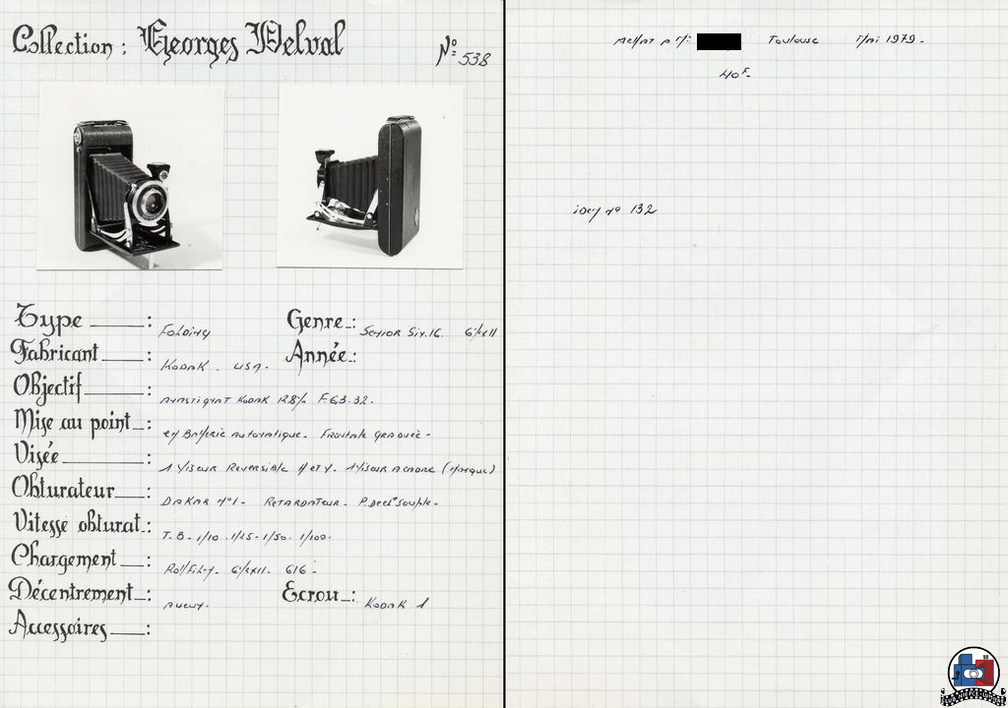 Collection : Georges Delval
N° 538
Type : Folding
Genre : Senior Six.16. 6½x11
Fabricant : Kodak . USA.
Année :
Objectif : Anastigmat Kodak 128% F.6,3-32.
Mise au point : en Batterie automatique. Frontale graduée -
Visée : 1 Viseur Reversible H et V. 1 Viseur a cadre (manque)
Obturateur : Dakar N°1 - Retardateur. P. Decl' Souple -
Vitesse obturat. : T. B. 1/10 . 1/25 - 1/50 . 1/100.
Chargement : Rollfilm. 6½x11. 616 -
Décentrement : aucun.
Ecrou : Kodak 1
Accessoires :
Achat a M: Toulouse Mai 1979.
40F.
idem n° 132